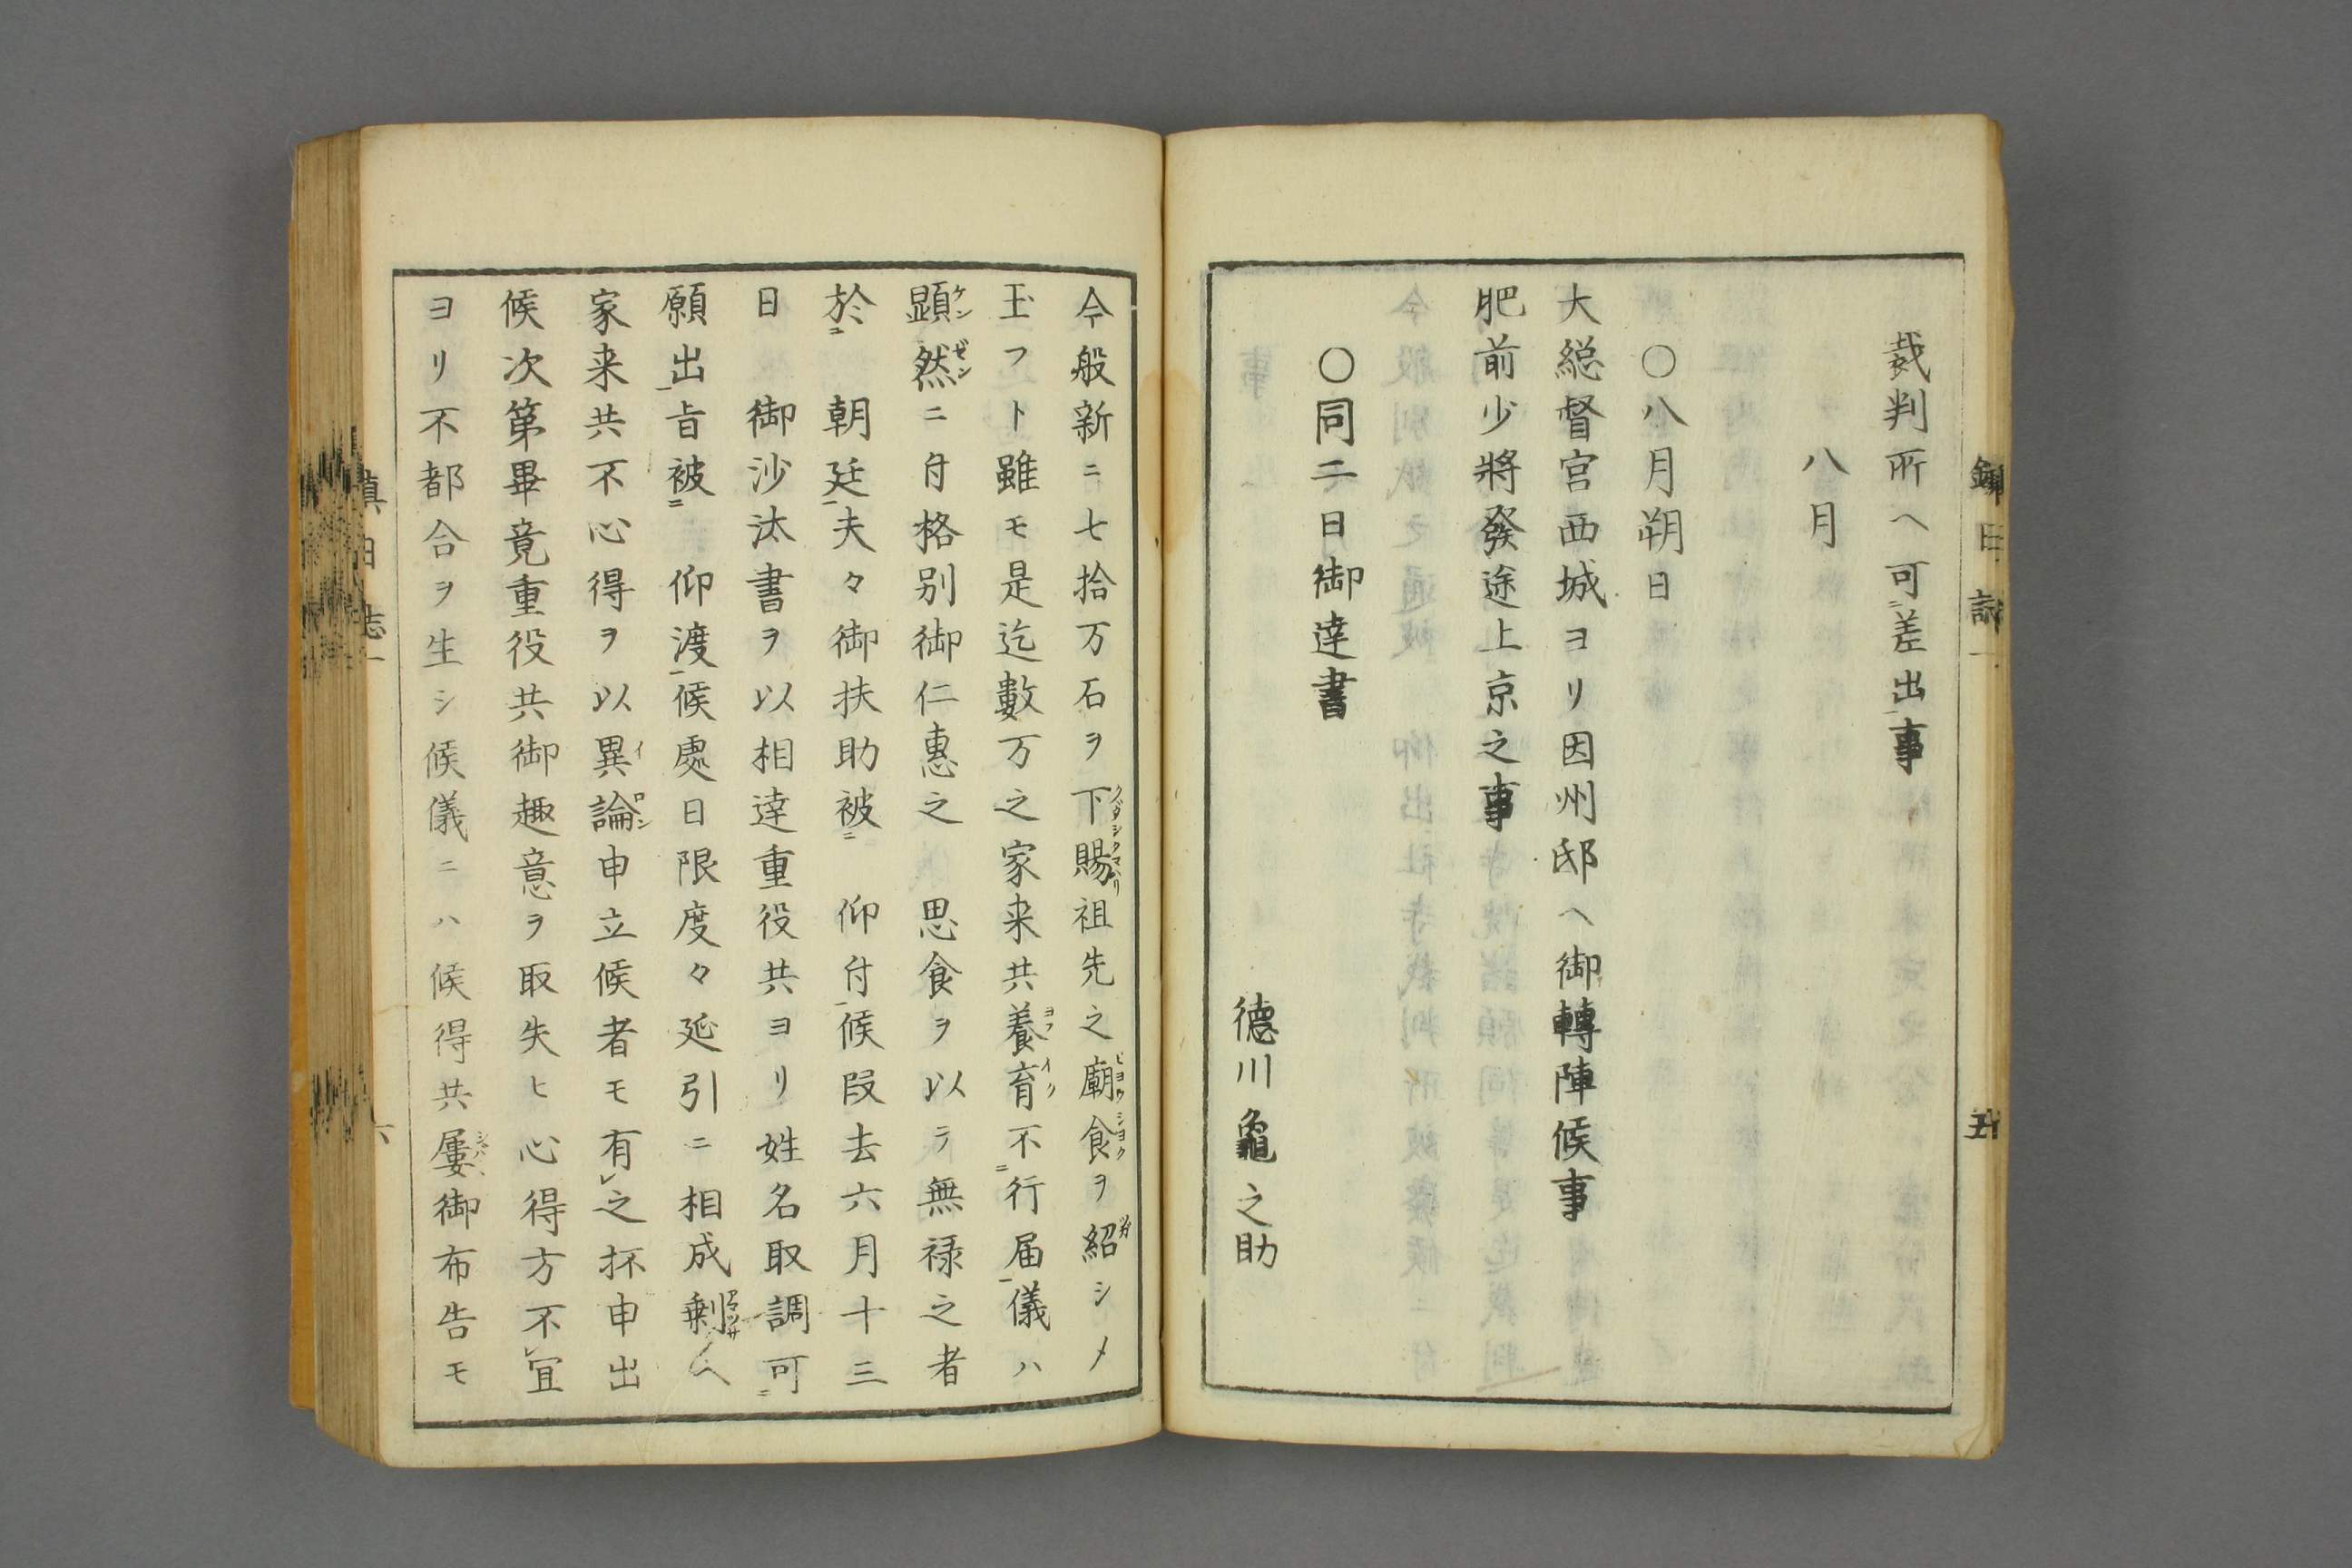 裁判所ヘ可差出事
八月
○八月朔日
大総督宮西城ヨリ因州邸ヘ御轉陣候事
肥前少將發途上京之事
○同二日御達書
德川龜之助
今般新ニ七拾万石ヲ下賜祖先之廟食ヲ紹シメ
玉フト雖モ是迄數万之家来共養育不行届儀ハ
顕然ニ付格別御仁惠之 思食ヲ以テ無禄之者
於 朝廷夫々御扶助被 仰付候段去六月十三
日 御沙汰書ヲ以相達重役共ヨリ姓名取調可
願出旨被 仰渡候處日限度々延引ニ相成剰ヘ
家来共不心得ヲ以異論申立候者モ有之抔申出
候次第畢竟重役共御趣意ヲ取失ヒ心得方不宜
ヨリ不都合ヲ生シ候儀ニハ候得共屢御布告モ
六